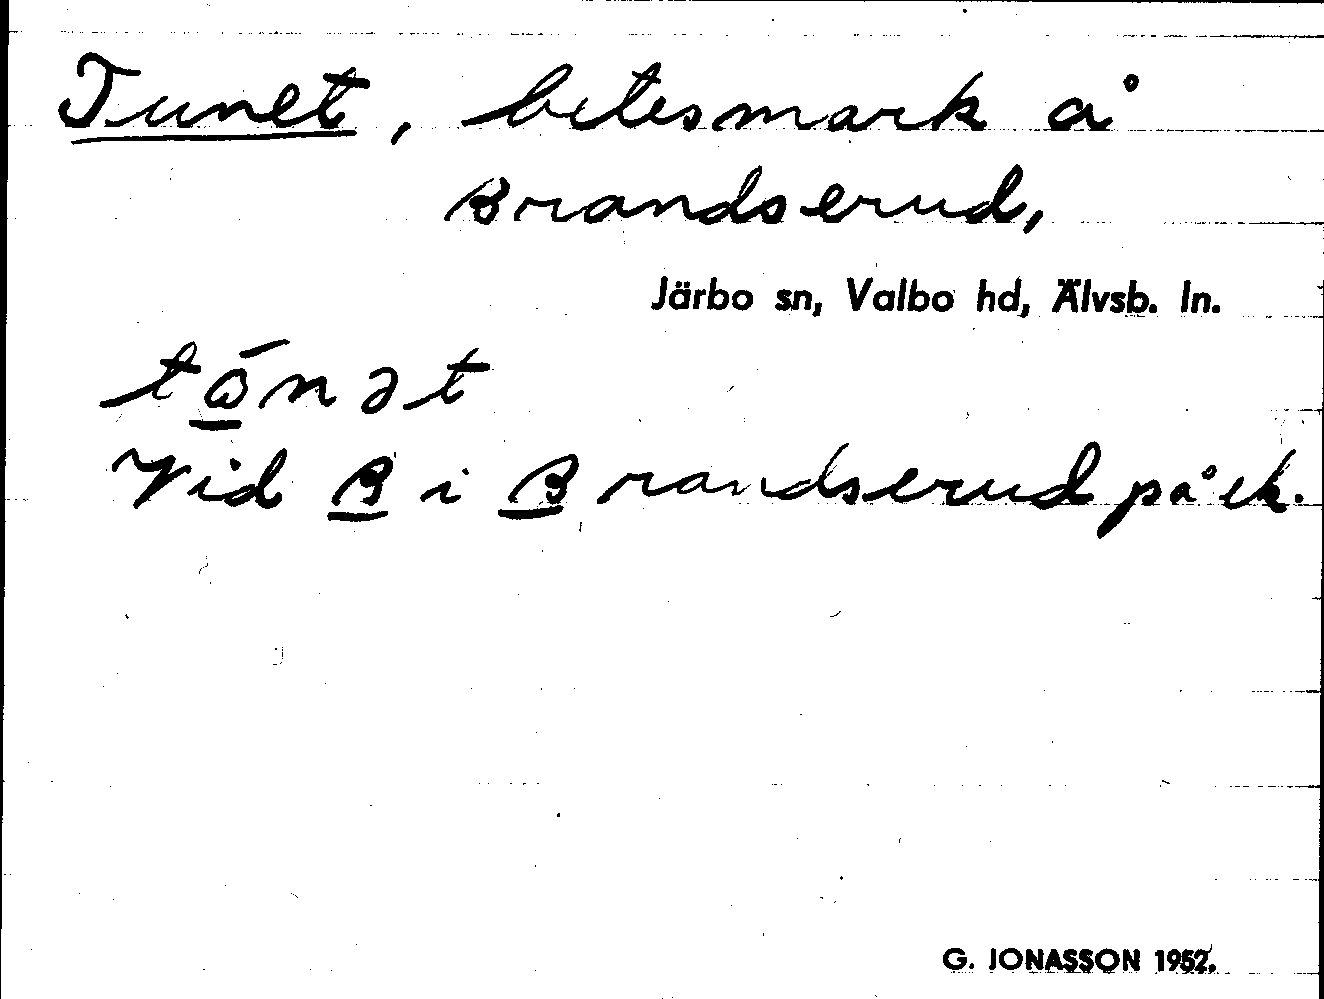 Tunet, betesmark å
Brandserud,
Järbo sn, Valbo hd, Älvsb. ln.
tώ̲nət
Vid B i Brandserud på ek.
G. JONASSON 1952.